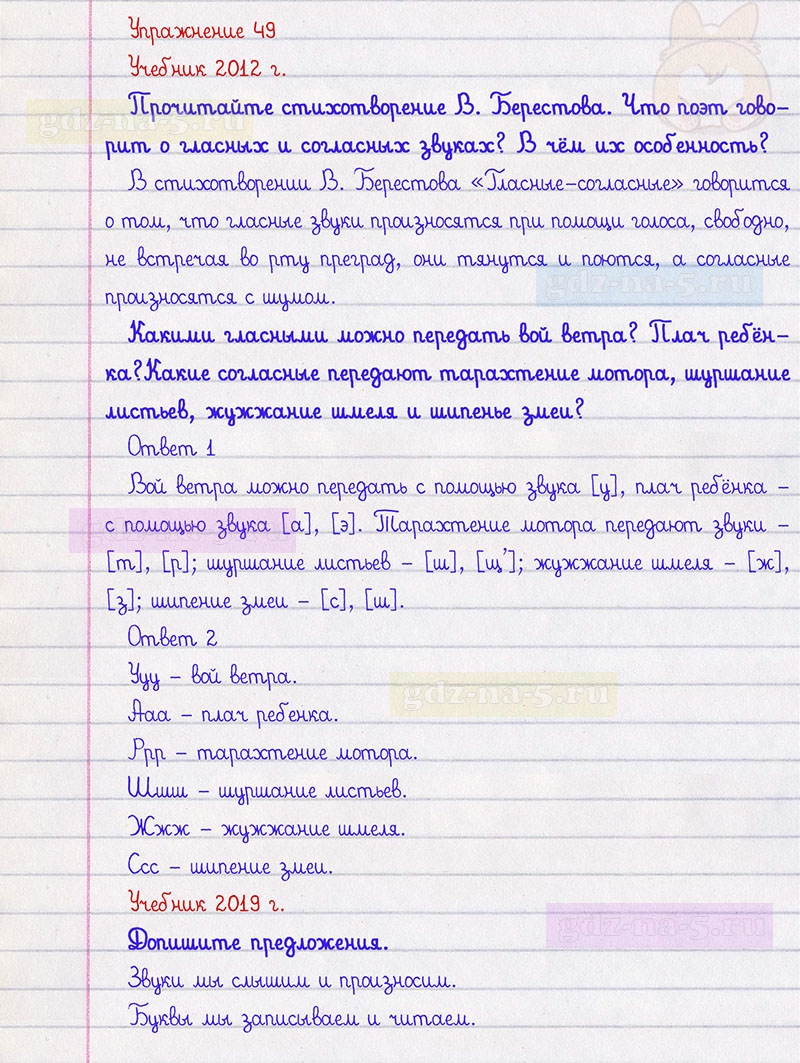 Упражнение 49
Учебник 2012 г.
Прочитайте стихотворение В. Берестова. Что поэт гово-
рит о гласных и согласных звуках? В чём их особенность?
В стихотворении В. Берестова «Гласные-согласные» говорится
о том, что гласные звуки произносятся при помощи голоса, свободно,
не встречая во рту преград, они тянутся и поются, а согласные
произносятся с шумом.
Какими гласными можно передать вой ветра? Плач ребён-
ка?Какие согласные передают тарахтение мотора, шуршание
листьев, жужжание шмеля и шипенье змеи?
Ответ 1
Вой ветра можно передать с помощью звука [у], плач ребёнка –
с помощью звука [а], [э]. Тарахтение мотора передают звуки –
[т], [р]; шуршание листьев – [ш], [щ’]; жужжание шмеля – [ж],
[з]; шипение змеи – [с], [ш].
Ответ 2
Ууу – вой ветра.
Ааа – плач ребенка.
Ррр – тарахтение мотора.
Шшш – шуршание листьев.
Жжж – жужжание шмеля.
Ссс – шипение змеи.
Учебник 2019 г.
Допишите предложения.
Звуки мы слышим и произносим.
Буквы мы записываем и читаем.
gdz-na-5.ru
gdz-na-5.ru
gdz-na-5.ru
gdz-na-5.ru
gdz-na-5.ru